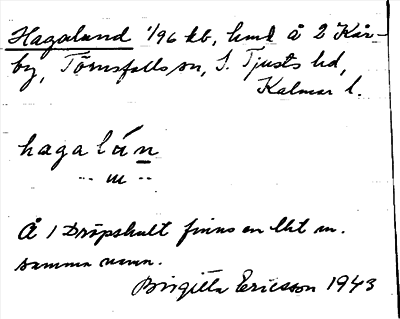 Hagalund 1/96 kb, hmd å 2 Kår-
by, Törnsfalls sn, S. Tjusts hd,
Kalmar l.
hagalán
-- m --
Å 1 Dröpshult finns en lht m.
samma namn.
Birgitta Ericsson 1943